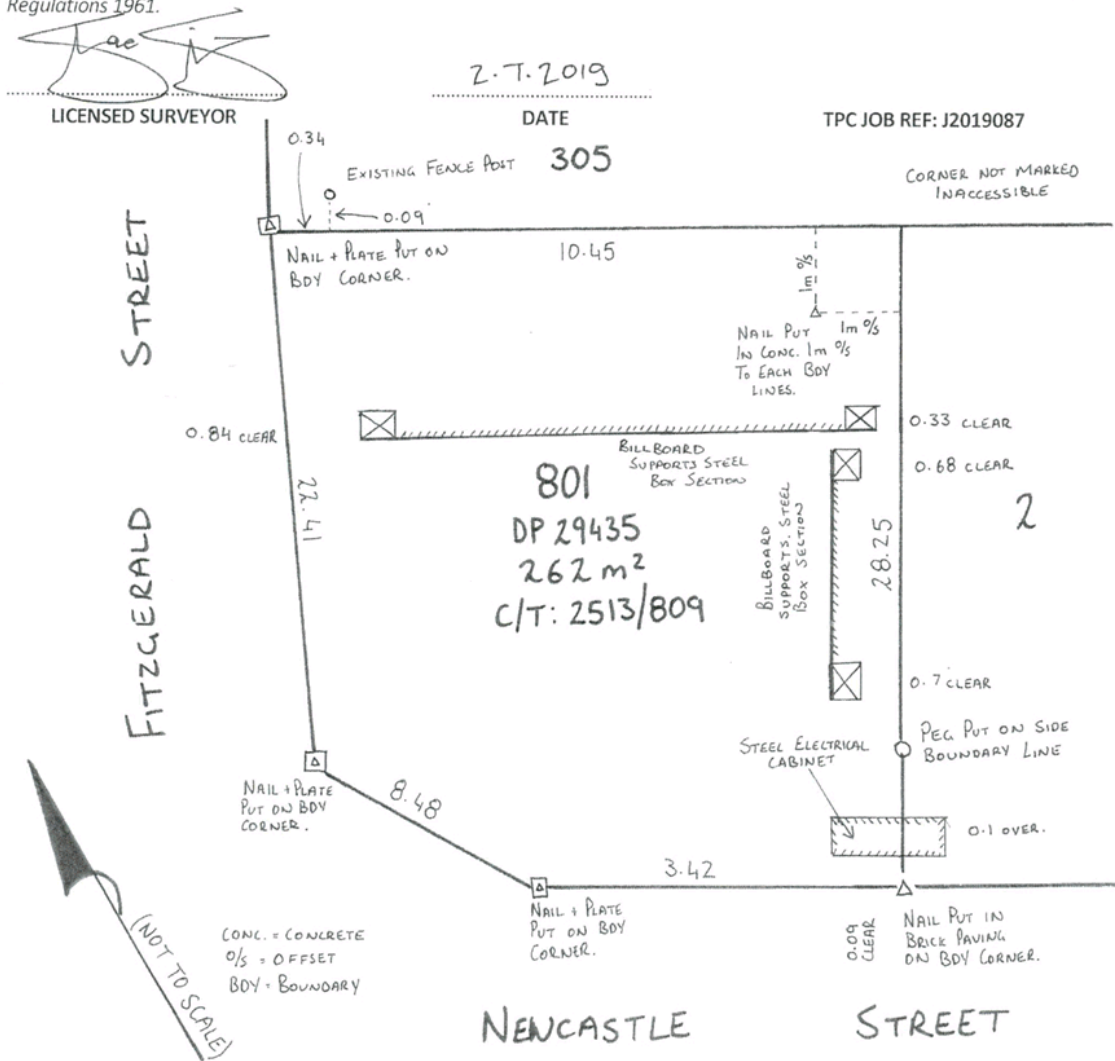 Regulations 1961.
2.7.2019
LICENSED SURVEYOR
DATE
TPC JOB REF: J2019087
0.34
EXISTING FENCE POST
305
CORNER NOT MARKED
INACCESSIBLE
0.09
NAIL + PLATE PUT ON
BDY CORNER.
10.45
1m %s
NAIL PUT
IN CONC. 1m %s
TO EACH BDY
LINES.
1m %s
STREET
FITZGERALD
0.84 CLEAR
22.41
BILLBOARD
SUPPORTS STEEL
BOX SECTION
0.33 CLEAR
0.68 CLEAR
801
DP 29435
262 m²
C/T: 2513/809
BILLBOARD
SUPPORTS. STEEL
BOX SECTION
28.25
2
0.7 CLEAR
STEEL ELECTRICAL
CABINET
PEG PUT ON SIDE
BOUNDARY LINE
NAIL + PLATE
PUT ON BDY
CORNER.
8.48
0.1 OVER.
3.42
NAIL + PLATE
PUT ON BDY
CORNER.
0.09
CLEAR
NAIL PUT IN
BRICK PAVING
ON BDY CORNER.
(NOT TO SCALE)
CONC. = CONCRETE
O/S = OFFSET
BDY = BOUNDARY
NEWCASTLE STREET